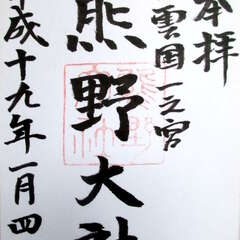 奉拝
出雲国一之宮
熊野大社
平成十九年一月四